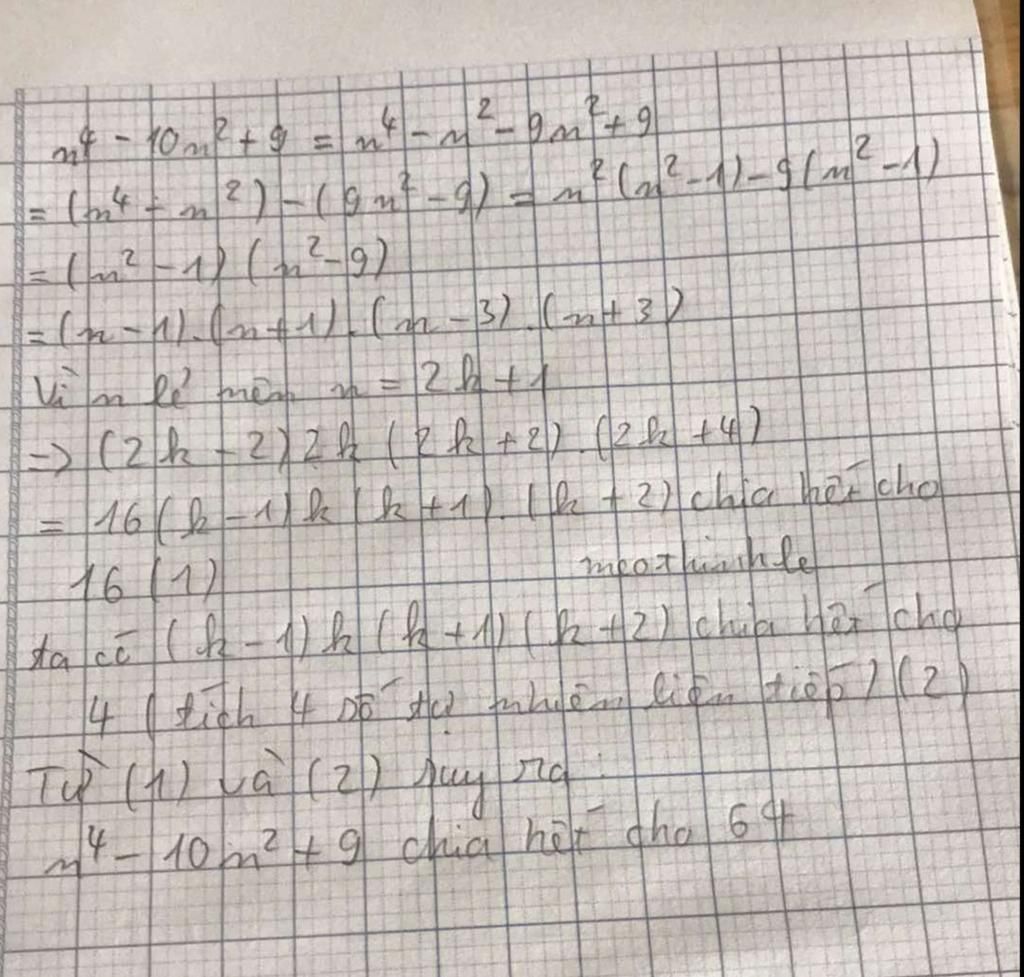 n⁴ - 10n² + 9 = n⁴ - n² - 9n² + 9
= (n⁴ - n²) - (9n² - 9) = n²(n² - 1) - 9(n² - 1)
= (n² - 1)(n² - 9)
= (n - 1).(n + 1).(n - 3).(n + 3)
Vì n lẻ nên n = 2k + 1
=> (2k - 2) 2k (2k + 2).(2k + 4)
= 16(k - 1)k(k + 1).(k + 2) chia hết cho
16 (1)
meothinhle
ta có (k - 1)k(k + 1)(k + 2) chia hết cho
4 (tích 4 số tự nhiên liên tiếp) (2)
Từ (1) và (2) suy ra:
n⁴ - 10n² + 9 chia hết cho 64